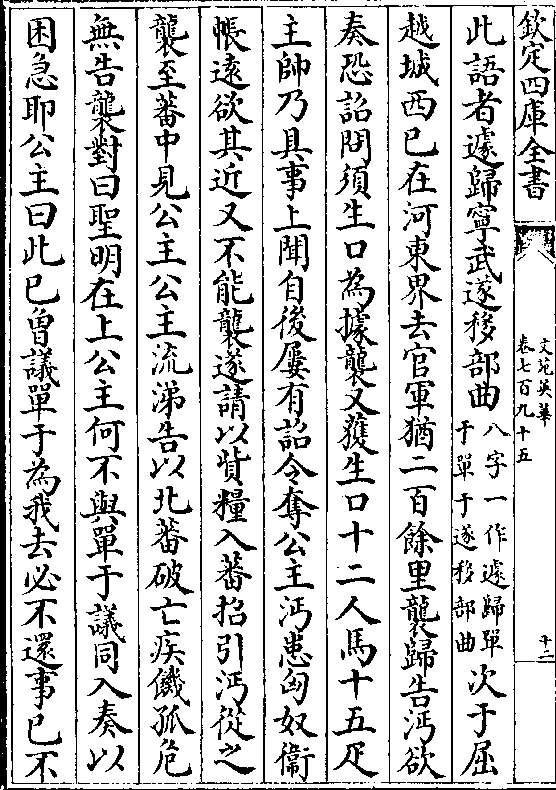 欽定四庫全書
文苑英華
卷七百九十五
十二
此語者遽歸寧武遂移部曲八字一作遽歸單于單于遂移部曲次于屈
越城西已在河東界去官軍猶二百餘里襲歸告沔欲
奏恐詔問須生口為據襲又獲生口十二人馬十五疋
主帥乃具事上聞自後屢有詔令奪公主沔患匈奴衞
帳遠欲其近又不能襲遂請以貲糧入蕃招引沔從之
襲至蕃中見公主公主流涕告以北蕃破亡疾饑孤危
無告襲對曰聖明在上公主何不與單于議同入奏以
困急耶公主曰此已曾議單于為我去必不還事已不